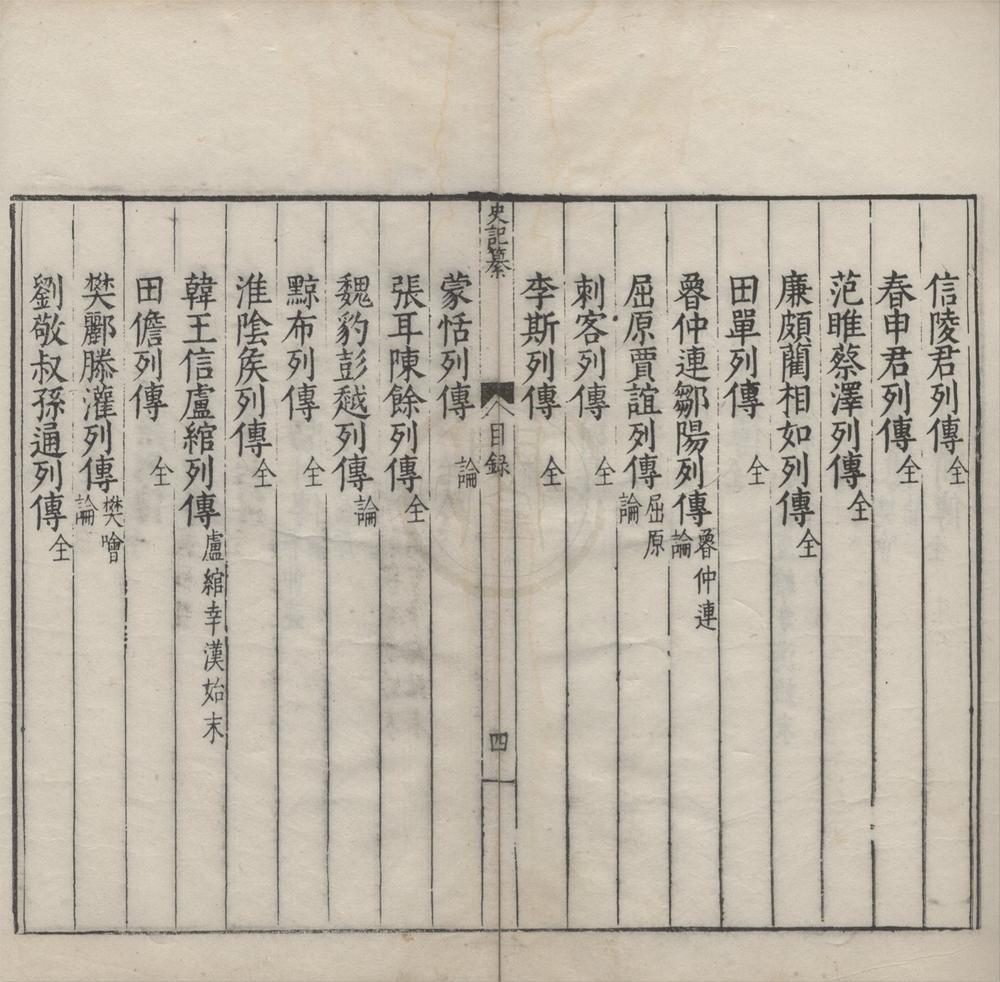 信陵君列傳 全
春申君列傳 全
范睢蔡澤列傳 全
廉頗藺相如列傳 全
田單列傳 全
魯仲連鄒陽列傳 魯仲連 論
屈原賈誼列傳 屈原 論
刺客列傳 全
李斯列傳 全
史記纂 目録 四
蒙恬列傳 論
張耳陳餘列傳 全
魏豹彭越列傳 論
黥布列傳 全
淮陰矦列傳 全
韓王信盧綰列傳 盧綰幸漢始末
田儋列傳 全
樊酈滕灌列傳 樊噲 論
劉敬叔孫通列傳 全